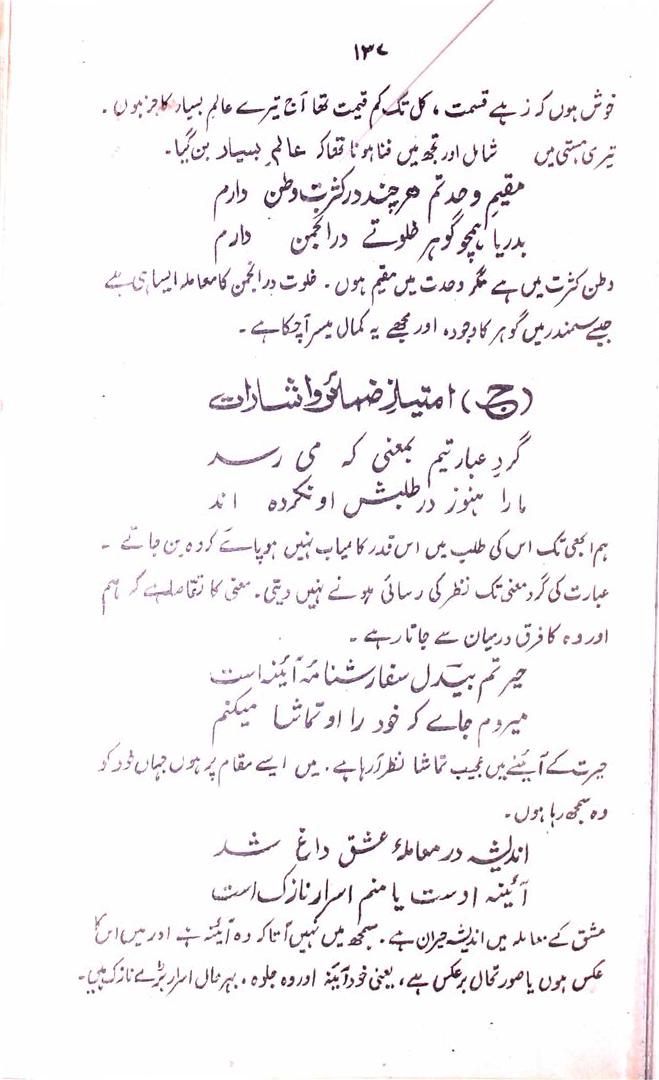 ۱۳۷
خوش ہوں کہ زہے قسمت ، کل تک کم قیمت تھا آج تیرے عالمِ بسیار کا جز ہوں ۔
تیری ہستی میں شامل اور تجھ میں فنا ہونا تھا کہ عالمِ بسیار بن گیا۔
مقیمِ وحدتم ہر چند در کثرت وطن دارم
بدریا ہمچو گوہر خلوتے در انجمن دارم
وطن کثرت میں ہے مگر وحدت میں مقیم ہوں ۔ خلوت در انجمن کا معاملہ ایسا ہی ہے
جیسے سمندر میں گوہر کا وجود ہ اور مجھے یہ کمال میسر آچکا ہے ۔
(ج) امتیازِ ضمائر و اشارات
گردِ عبارتیم بمعنی کہ می رسد
ما را ہنوز در طلبش او نکردہ اند
ہم ابھی تک اس کی طلب میں اس قدر کامیاب نہیں ہو پائے کہ وہ بن جاتے ۔
عبارت کی گرد معنی تک نظر کی رسائی ہونے نہیں دیتی۔ معنی کا تقاضا ہے کہ ہم
اور وہ کا فرق درمیان سے جاتا رہے ۔
حیرتم بیدل سفارشنامۂ آئینہ است
میروم جاے کہ خود را او تماشا میکنم
حیرت کے آئینے میں عجیب تماشا نظر آرہا ہے ۔ میں ایسے مقام پر ہوں جہاں خود کو
وہ سمجھ رہا ہوں ۔
اندیشہ در معاملۂ عشق داغ شد
آئینہ اوست یا منم اسرار نازک است
عشق کے معاملہ میں اندیشہ حیران ہے ۔ سمجھ میں نہیں آتا کہ وہ آئینہ ہے اور میں اس کا
عکس ہوں یا صورتحال برعکس ہے ، یعنی خود آئینہ اور وہ جلوہ ، بہرحال اسرار بڑے نازک ہیں ۔